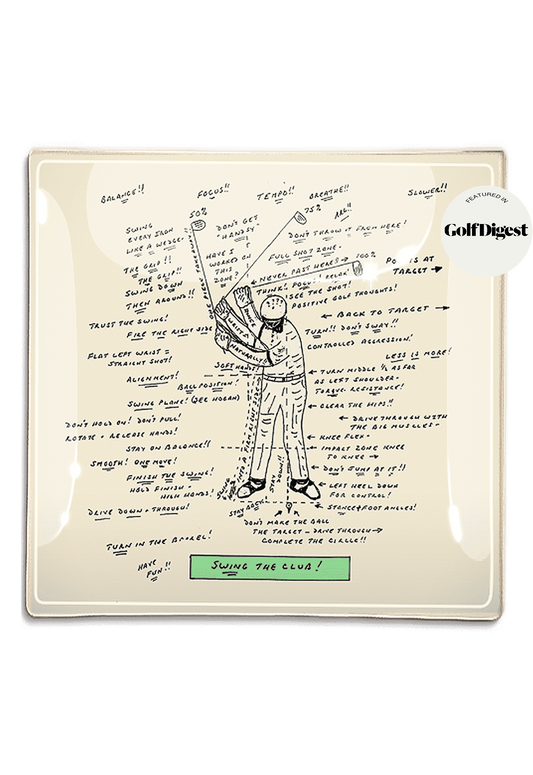 BALANCE!!
FOCUS!!
TEMPO!!
BREATHE!!
SLOWER!!
FEATURED IN
GolfDigest
50%
75%
SWING
EVERY IRON
LIKE A WEDGE.
DON'T GET
"HANDSY"
DON'T THROW IT FROM HERE!
THE GRIP!!
THE GRIP!!
HAVE I
WORKED ON
THIS
ZONE?
FULL SHOT ZONE.
NEVER PAST HERE → 100%
IS AT
TARGET →
SWING DOWN
THEN AROUND!!
THINK! FOCUS! RELAX!
SEE THE SHOT!
POSITIVE GOLF THOUGHTS!
← BACK TO TARGET →
TRUST THE SWING!
FIRE THE RIGHT SIDE
TURN!! DON'T SWAY!!
CONTROLLED AGGRESSION!
FLAT LEFT WRIST =
STRAIGHT SHOT!
LESS IS MORE!
SOFT HANDS
NATURALLY
ALIGNMENT!
BALL POSITION!
← TURN MIDDLE 1/2 AS FAR
AS LEFT SHOULDER.
TORQUE. RESISTANCE!
SWING PLANE! (SEE HOGAN)
← CLEAR THE HIPS!!
DON'T HOLD ON! DON'T PULL!
ROTATE + RELEASE HANDS!
← DRIVE THROUGH WITH
THE BIG MUSCLES →
← KNEE FLEX →
STAY ON BALANCE!!
← IMPACT ZONE KNEE
TO KNEE →
SMOOTH! ONE MOVE!
← DON'T JUMP AT IT!!
FINISH THE SWING!
HOLD FINISH -
HIGH HANDS!
← LEFT HEEL DOWN
FOR CONTROL!
STAY BACK!
STAY DOWN!
← STANCE + FOOT ANGLES!
DRIVE DOWN + THROUGH!
DON'T MAKE THE BALL
THE TARGET - DRIVE THROUGH →
COMPLETE THE CIRCLE!!
TURN IN THE BARREL!
HAVE
FUN!!
SWING THE CLUB!